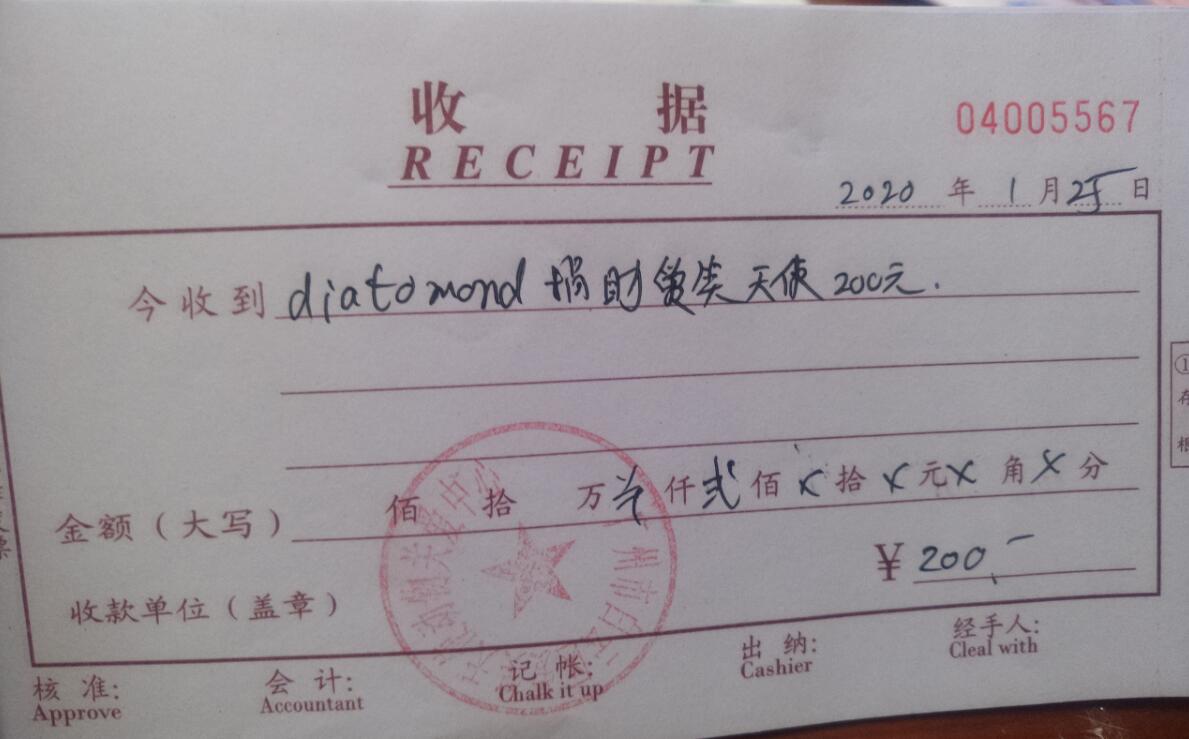 收 据
RECEIPT
04005567
2020 年 1 月 25 日
今收到 diatomond 捐助 天使 200元.
金额（大写） 佰 拾 万 仟 贰 佰 x 拾 x 元 x 角 x 分
¥ 200 -
收款单位（盖章）
核 准: 会 计: 记 帐: 出 纳: 经手人:
Approve Accountant Chalk it up Cashier Cleal with
①
存
根